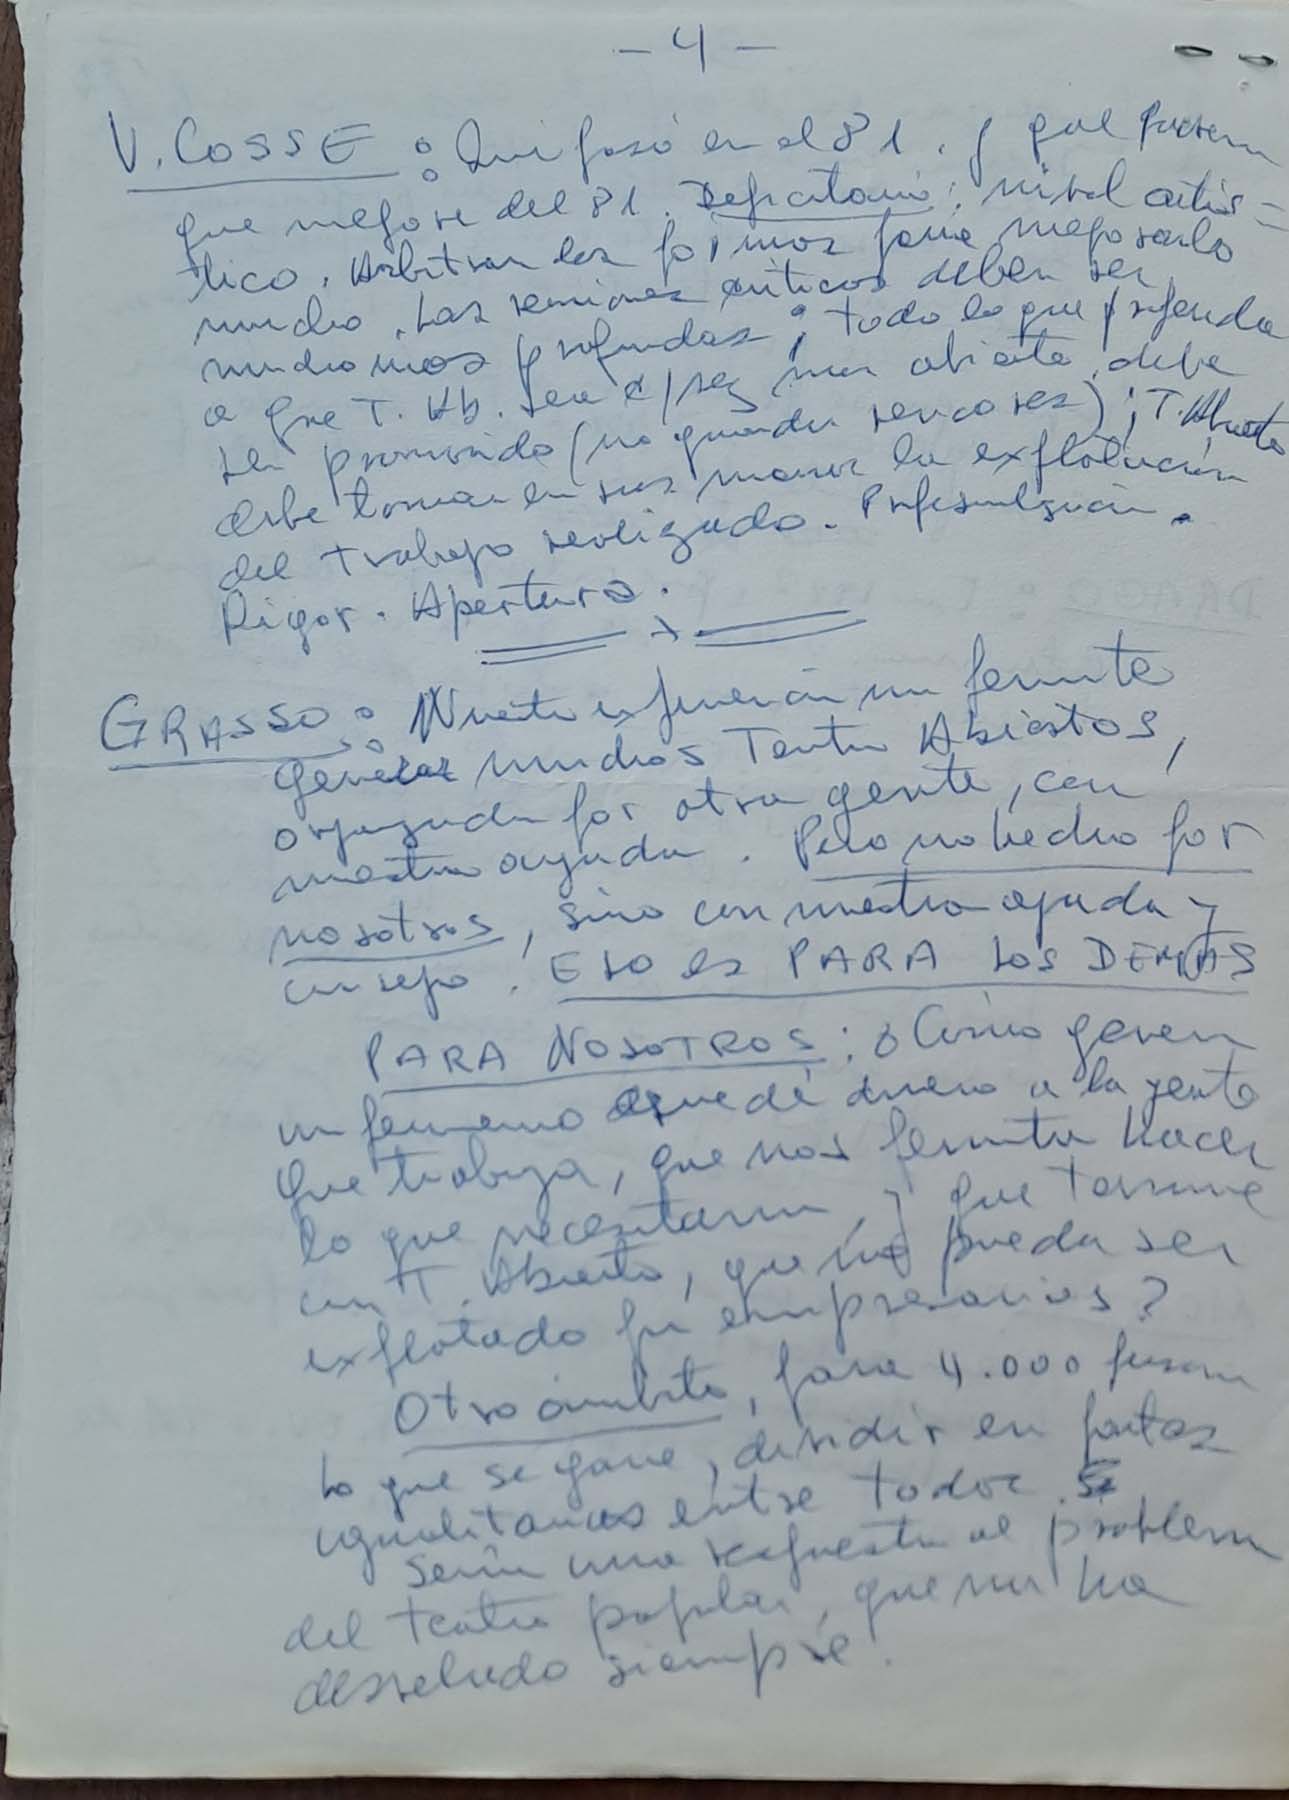 - 4 -
V. COSSE : Qué pasó en el 81. y qué pasem
que mejore del 81. Deficitario: nivel artís=
tico. Arbitrar las formas para mejorarlo
mucho. Las reuniones críticas deben ser
mucho más profundas; todo lo que propenda
a que T. Ab. sea c/vez más abierto debe
ser promovido (no guardar rencores); T. Abierto
debe tomar en sus manos la explotación
del trabajo realizado. Profesionalización.
Rigor. Apertura.
GRASSO : Nuestra experiencia nos permite
generar muchos Teatros Abiertos,
organizados por otra gente, con
nuestra ayuda. Pero no hecho por
nosotros, sino con nuestra ayuda y
consejo. ESO es PARA LOS DEMÁS
PARA NOSOTROS: ¿Cómo generar
un fenómeno que dé dinero a la gente
que trabaja, que nos permita hacer
lo que necesitamos, y que termine
en T. Abierto, que no pueda ser
explotado por empresarios?
Otro ámbito, para 4.000 personas
Lo que se gane, dividir en partes
igualitarias entre todos.
Sería una respuesta al problema
del teatro popular, que nos ha
desvelado siempre.